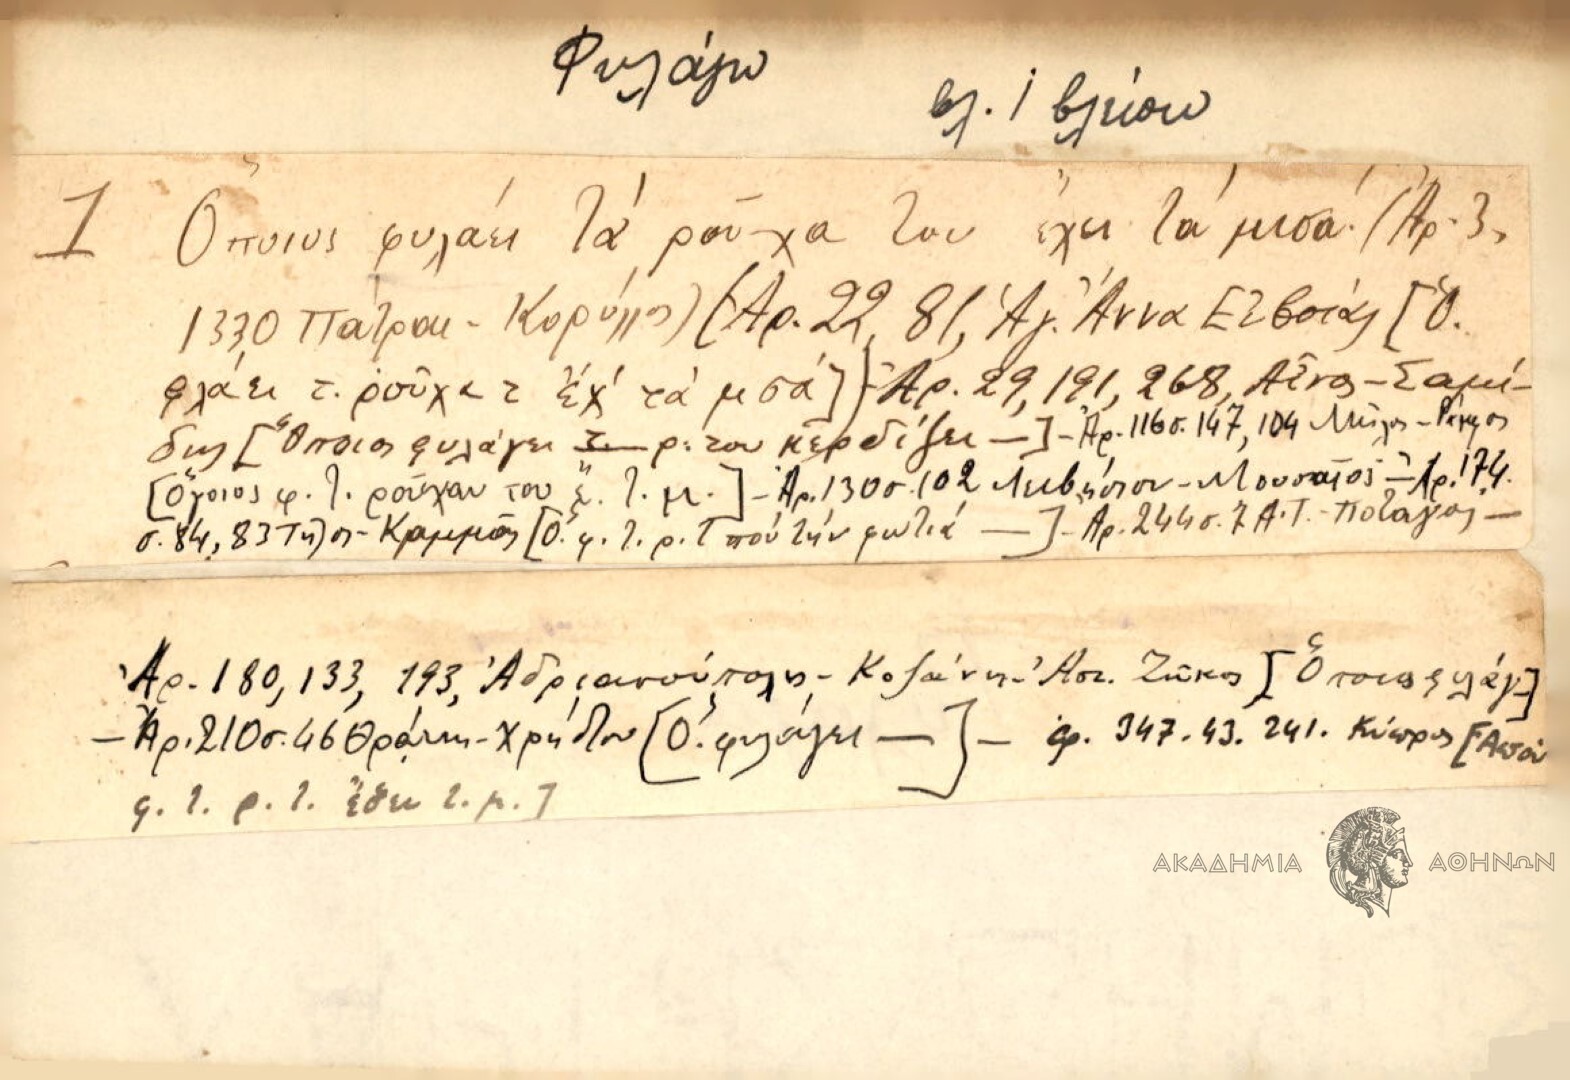 Φυλάγω
βλ. i βλέπω
1 Ὅποιος φυλάει τά ροῦχα του ἔχει τά μισά. (Ἀρ. 3,
1330 Πάτραι - Κορύλλος) (Ἀρ. 22, 81, Ἁγ. Ἄννα Εὐβοίας [Ὅ.
φλάει τ. ῥοῦχα τ ἔχ' τά μσά] - Ἀρ. 29, 191, 268, Αἶνος - Σαμί-
δης [Ὅποιος φυλάγει ρ. του κερδίζει —] - Ἀρ. 116 σ. 147, 104 Μῆλος -
[Ὅγοιος φ. τ. ροῦχαν του ἔ. τ. μ.] - Ἀρ. 130 σ. 102 - Μουσαῖος - Ἀρ. 174
σ. 84, 83 Τῆλος - Καμμᾶς [Ὅ. φ. τ. ρ. τ πού τήν φωτιά —] - Ἀρ. 244 σ. 7 Α.Τ. - Πόταγας —
Ἀρ. 180, 133, 193, Ἀδριανούπολις - Κοζάνης - Ἀστ. Ζῶκος [Ὅποιος φυλάγ]
— Ἀρ. 210 σ. 46 Θράκης - Χρήστου [Ὅ. φυλάγει —] — ἀρ. 347. 43. 241. Κύπρος [Ἀπού
φ. τ. ρ. τ. ἔδει τ. μ.]
ΑΚΑΔΗΜΙΑ ΑΘΗΝΩΝ